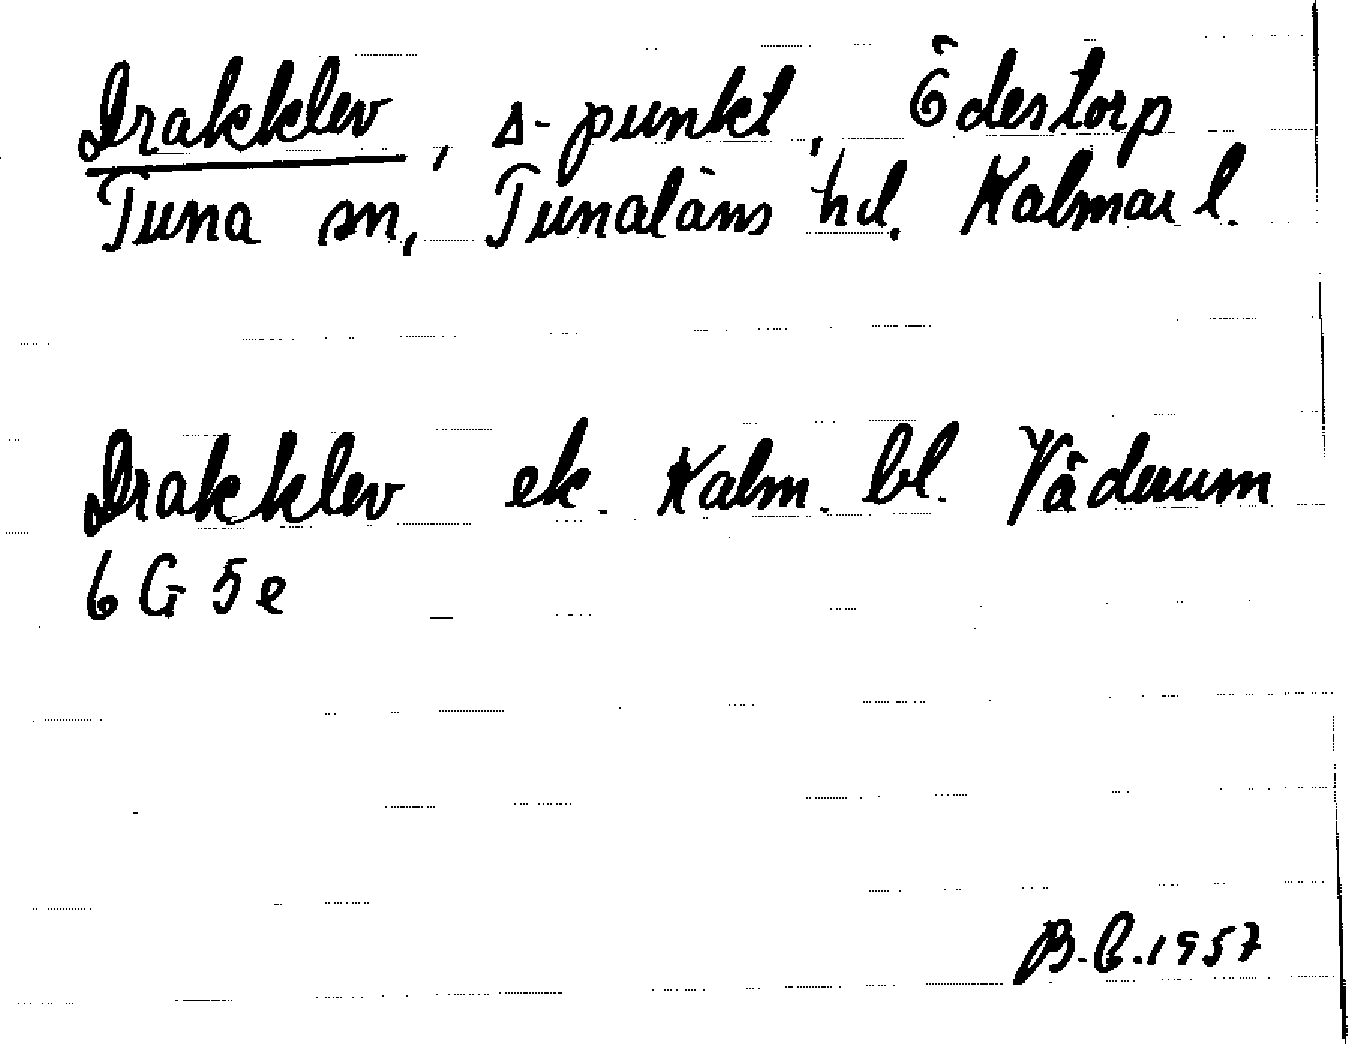 Drakklev, s-punkt, Ödestorp
Tuna sn, Tunaläns hd. Kalmar l.
Drakklev ek. Kalm. bl. Väderum
6 G 5 e
B.E. 1957